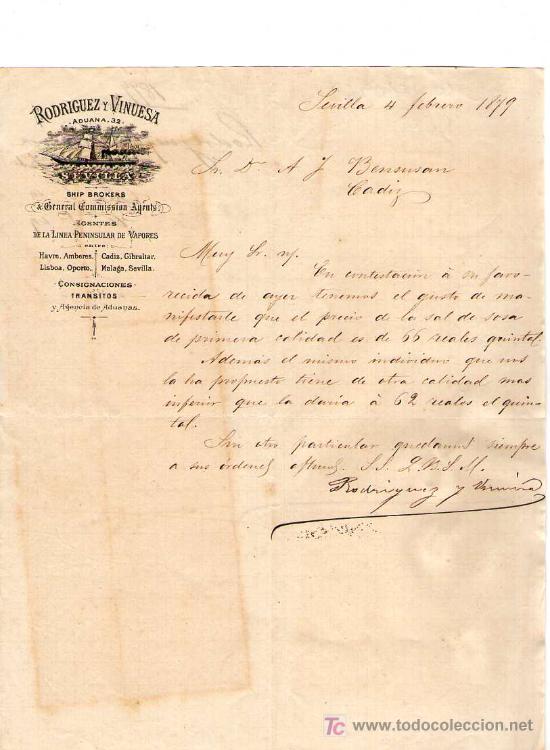 RODRIGUEZ Y VINUESA
ADUANA, 32.
SEVILLA
SHIP BROKERS
& General Commission Agents
AGENTES
DE LA LINEA PENINSULAR DE VAPORES
ENTRE
Havre, Amberes, Cadiz, Gibraltar,
Lisboa, Oporto, Malaga, Sevilla.
CONSIGNACIONES
TRANSITOS
y Agencia de Aduanas.
Sevilla 4 febrero 1879
Sr. Dn. A J Bensusan
Cadiz
Muy Sr. n/.
En contestación á su favo-
recida de ayer tenemos el gusto de ma-
nifestarle que el precio de la sal de sosa
de primera calidad es de 66 reales quintal.
Además el mismo individuo que nos
la ha propuesto tiene de otra calidad mas
inferior que la daria á 62 reales el quin-
tal.
Sin otro particular quedamos siempre
a sus órdenes aftmos. S. S. Q. B. S. M.
Rodriguez y Vinuesa
TC www.todocoleccion.net